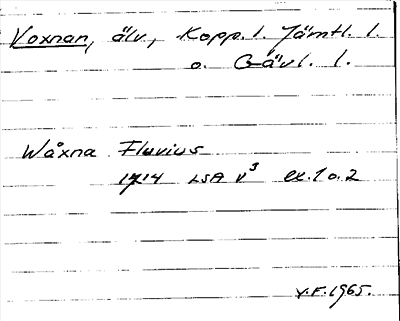 Voxnan, älv, Kopp. l. Jämtl. l.
o. Gävl. l.
Wåxna Fluvius
1714 LSA V3 ex. 1 o. 2
V.F. 1965.